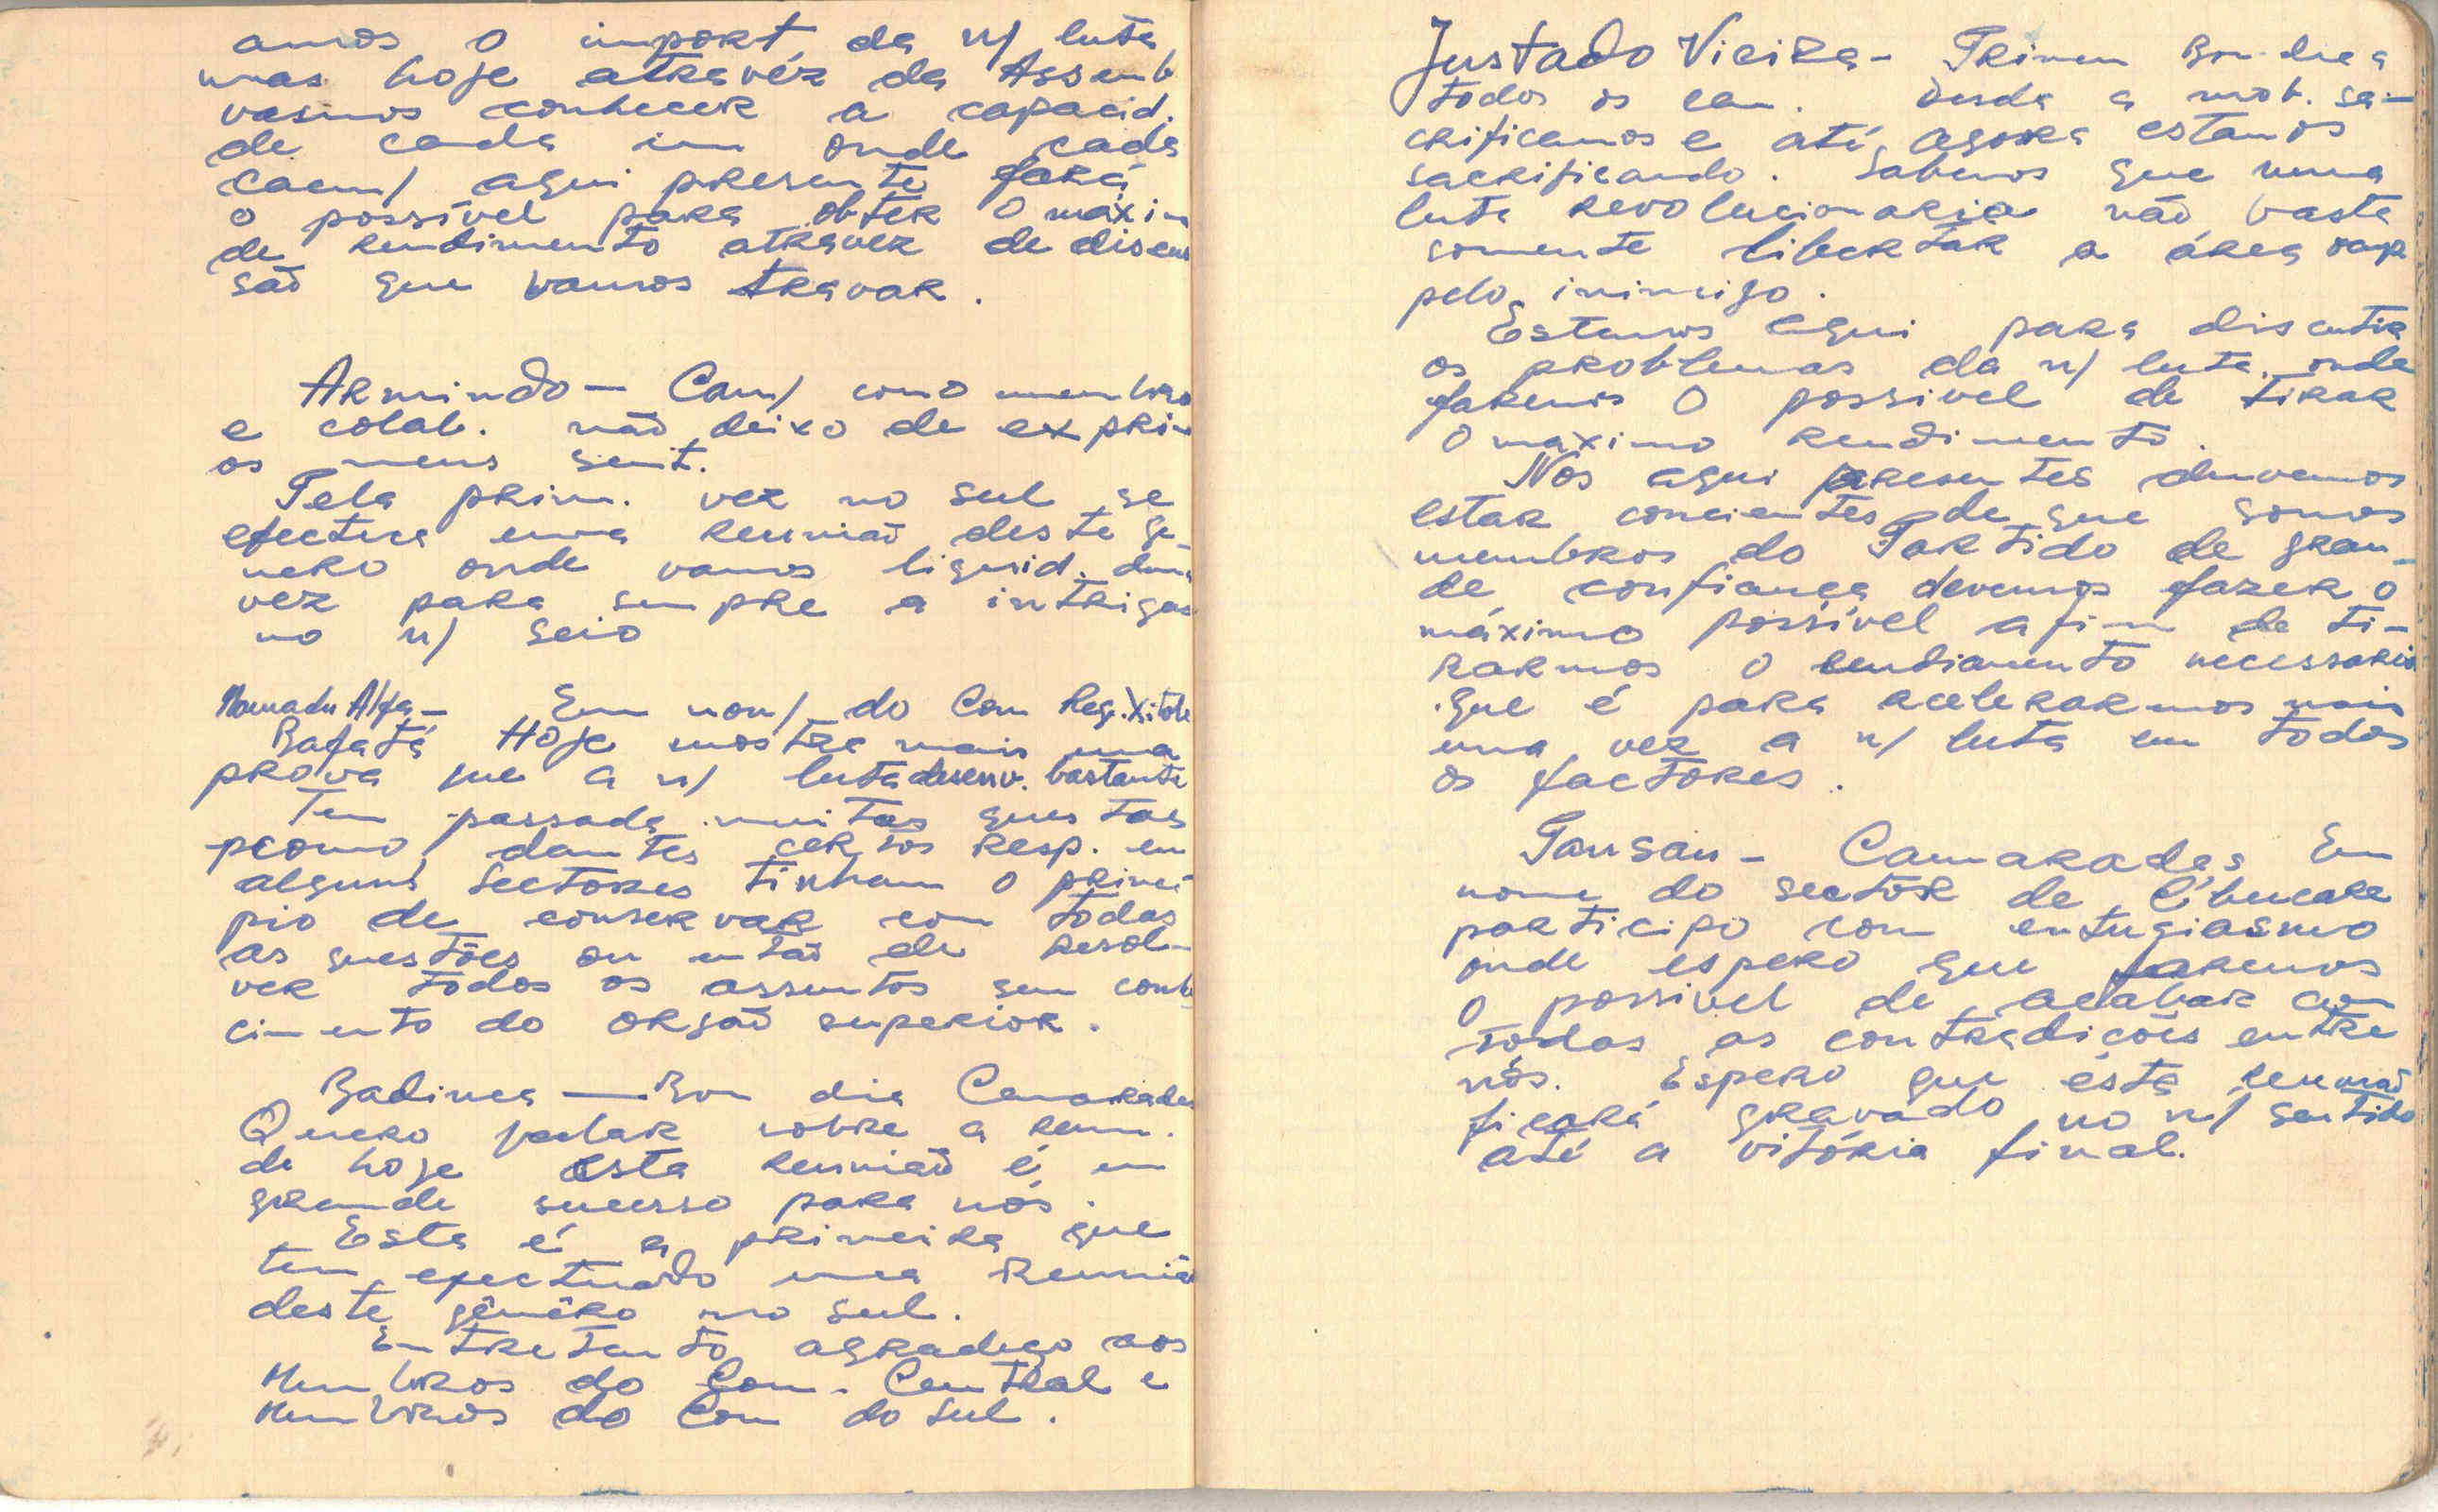 amos o import. da n/ luta
mas hoje atravéz da Assemb
vasmos conhecer a capacid.
de cada um onde cada
cam/ aqui presente fará
o possível para obter o máxim
de rendimento atravez de discus
são que vamos travar.
Armindo — Cam/ como membro
e colab. não deixo de exprim
os meus sent.
Pela prim. vez no sul se
efectua uma reunião deste ge-
nero onde vamos liquid. duma
vez para sempre a intrigas
no n/ seio
Mamadu Alfa — Em nom/ do Com Reg. Xitole
Bafatá Hoje mostra mais uma
prova que a n/ luta desenv. bastante
Tem passada muitas questas
como dantes certos resp. em
alguns sectores tinham o princi
pio de conservar com todas
as questões ou então de resol-
ver todos os assuntos sem conh
cimento do orgão superior.
Badinca — Bom dia Camarades
Quero falar sobre a reun.
de hoje esta reunião é um
grande sucesso para nós.
Esta é a primeira que
tem efectuado uma Reuniã
deste gênêro no sul.
Entretanto agradeço aos
Membros do Com. Central e
Membros do Com do Sul.
Justado Vieira - Primem Bom dia a
todos os cam. Desde a mob. sa-
crificamos e até agora estamos
sacrificando. Sabemos que numa
luta revolucionaria não basta
somente libertar a área ocup
pelo inimigo.
Estamos aqui para discutir
os problemas da n/ luta, onde
faremos o possivel de tirar
o maximo rendimento.
Nos aqui presentes devemos
estar concientes de que somos
membros do Partido de gran-
de confiança devemos fazer o
máximo possível afim de ti-
rarmos o rendiamento necessario
que é para acelerarmos mais
uma vez a n/ luta em todos
os factores.
Sansau - Camarades, Em
nome do sector de Cubucare
participo com entusiasmo
onde espero que faremos
o possivel de acabar com
todas as contradições entre
nós. Espero que ésta reunião
ficará gravado no n/ sentido
até a vitória final.